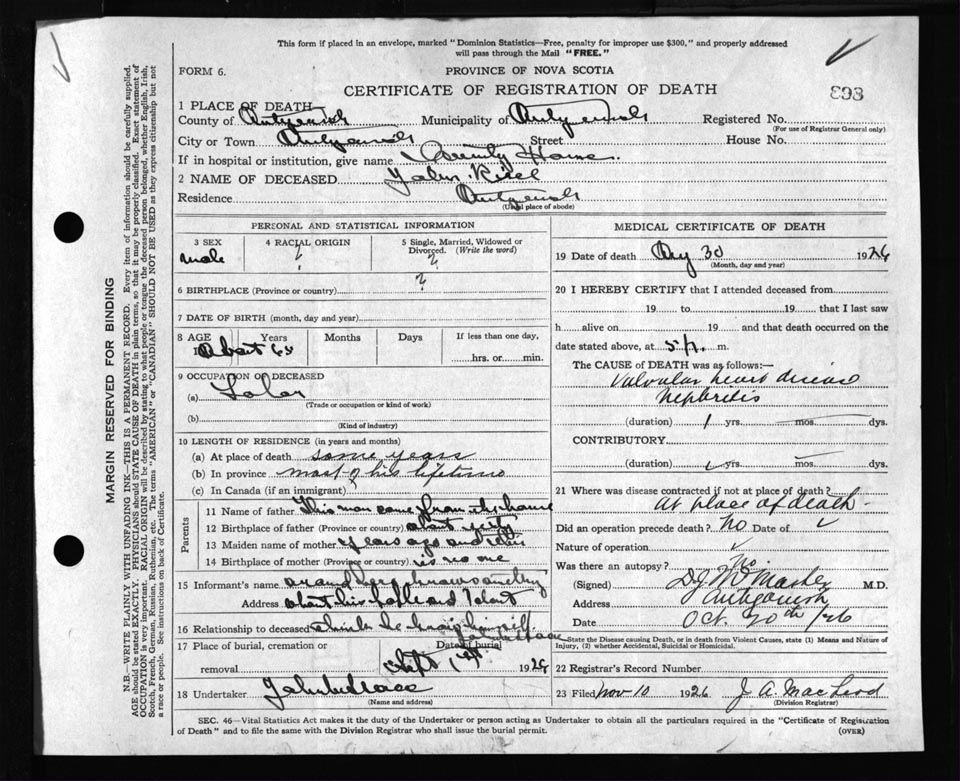 This form if placed in an envelope, marked "Dominion Statistics—Free, penalty for improper use $300," and properly addressed
will pass through the Mail "FREE."
FORM 6.
PROVINCE OF NOVA SCOTIA
CERTIFICATE OF REGISTRATION OF DEATH
893
1 PLACE OF DEATH
County of Antigonish Municipality of Antigonish Registered No.
(For use of Registrar General only)
City or Town Antigonish Street House No.
If in hospital or institution, give name County Home.
2 NAME OF DECEASED John
Residence Antigonish
(Usual place of abode)
PERSONAL AND STATISTICAL INFORMATION
3 SEX 4 RACIAL ORIGIN 5 Single, Married, Widowed or
Divorced. (Write the word)
male ? ?
6 BIRTHPLACE (Province or country) ?
7 DATE OF BIRTH (month, day and year)
8 AGE Years Months Days If less than one day,
About
hrs. or min.
9 OCCUPATION OF DECEASED
(a) Labor
(Trade or occupation or kind of work)
(b)
(Kind of industry)
10 LENGTH OF RESIDENCE (in years and months)
(a) At place of death some years
(b) In province most of his lifetime
(c) In Canada (if an immigrant)
Parents
11 Name of father This man came from
12 Birthplace of father (Province or country) about fifty
13 Maiden name of mother years ago and
14 Birthplace of mother (Province or country) is no one
15 Informant's name around here knows anything
Address about his people and I dont
16 Relationship to deceased think he knew himself
17 Place of burial, cremation or
removal
Date of burial
1st 1926
18 Undertaker John
(Name and address)
MEDICAL CERTIFICATE OF DEATH
19 Date of death Aug 30 1926
(Month, day and year)
20 I HEREBY CERTIFY that I attended deceased from
19 to 19 that I last saw
h alive on 19 and that death occurred on
date stated above, at 5 p. m.
The CAUSE of DEATH was as follows:—
Valvular heart disease
Nephritis
(duration) 1 yrs. mos. dys.
CONTRIBUTORY
(duration) yrs. mos. dys.
21 Where was disease contracted if not at place of death?
At place of death
Did an operation precede death? No Date of
Nature of operation
Was there an autopsy? No
(Signed) M.D.
Address Antigonish
Date Oct. 20th /26
State the Disease causing Death, or in death from Violent Causes, state (1) Means and Nature of
Injury, (2) whether Accidental, Suicidal or Homicidal.
22 Registrar's Record Number
23 Filed Nov 10 1926 J A. MacLeod
(Division Registrar)
SEC. 46—Vital Statistics Act makes it the duty of the Undertaker or person acting as Undertaker to obtain all the particulars required in the "Certificate of Registration
of Death" and to file the same with the Division Registrar who shall issue the burial permit.
(OVER)
MARGIN RESERVED FOR BINDING
N.B.—WRITE PLAINLY WITH UNFADING INK—THIS IS A PERMANENT RECORD. Every item of information should be carefully supplied.
AGE should be stated EXACTLY. PHYSICIANS should STATE CAUSE OF DEATH in plain terms, so that it may be properly classified. Exact statement of
OCCUPATION is very important. RACIAL ORIGIN will be described by stating to what people or tongue the deceased person belonged, whether English, Irish,
Scotch, French, German, Russian, Ruthenian, etc. The terms "AMERICAN" or "CANADIAN" SHOULD NOT BE USED as they express citizenship but not
a race or people. See instructions on back of Certificate.